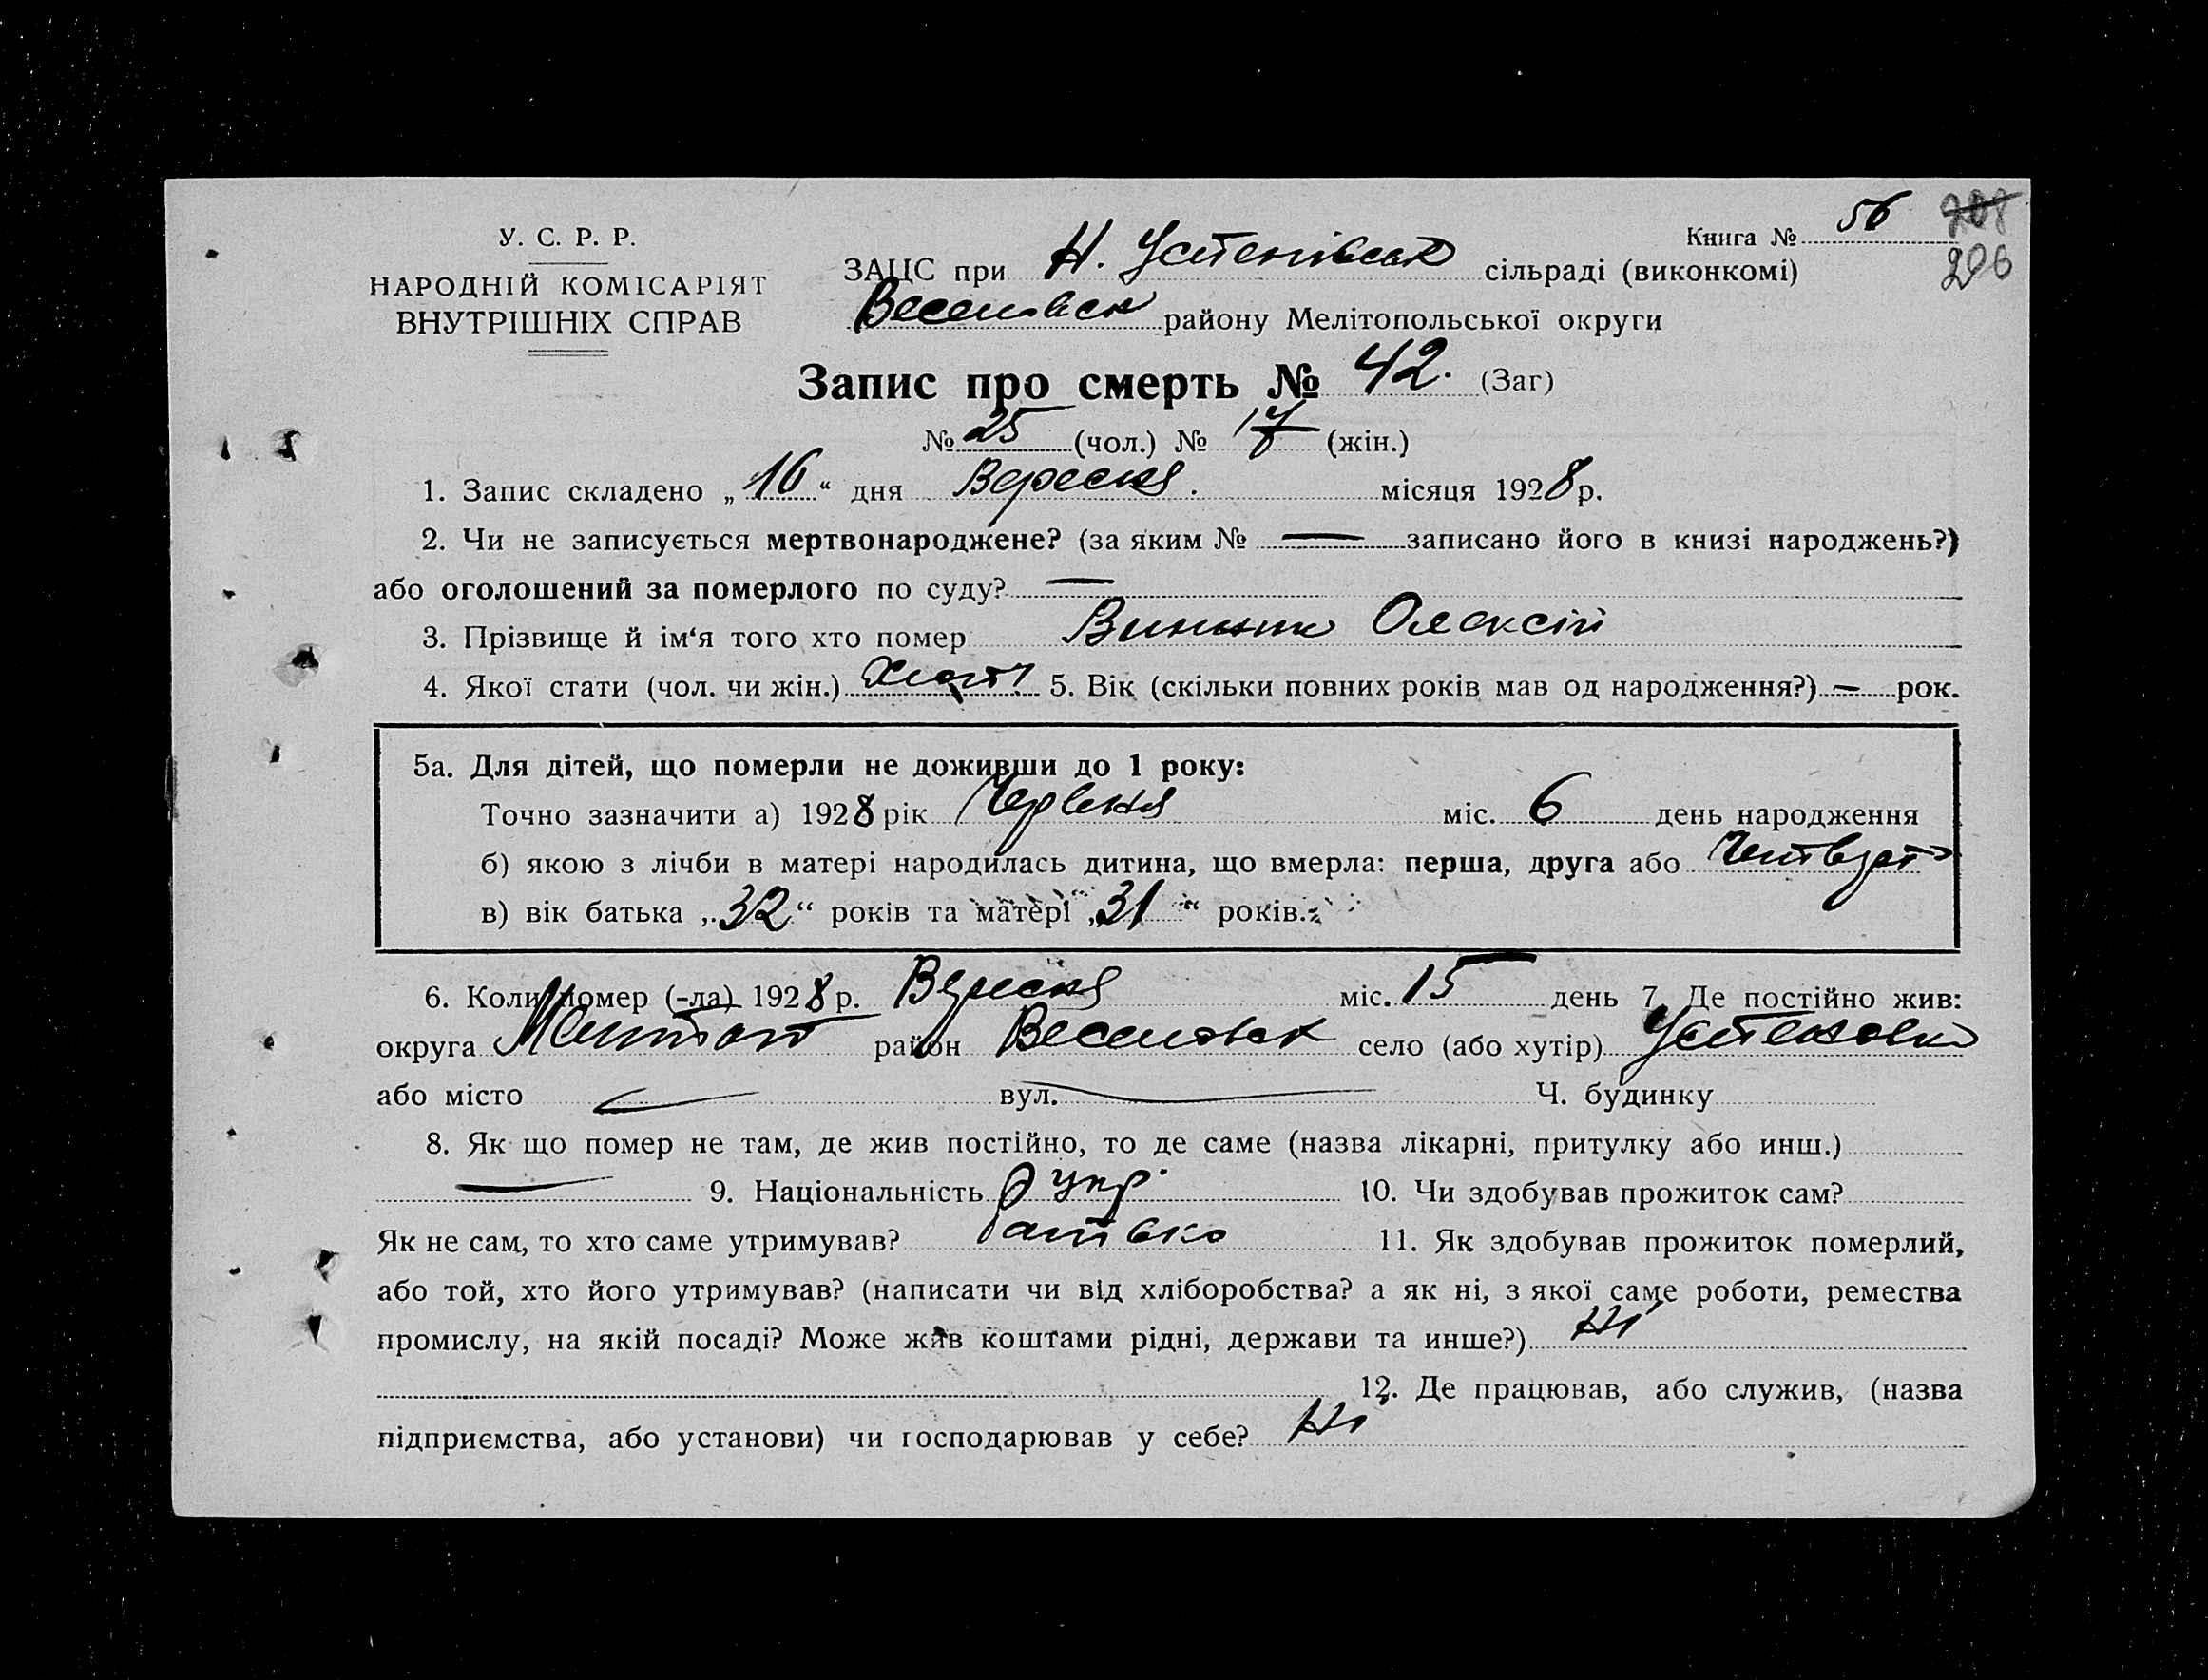 Книга № 56 208
206
У. С. Р. Р.
НАРОДНІЙ КОМІСАРІЯТ
ВНУТРІШНІХ СПРАВ
ЗАЦС при Н. Устенівськ сільраді (виконкомі)
Веселовськ району Мелітопольської округи
Запис про смерть № 42. (Заг)
№ 25 (чол.) № 17 (жін.)
1. Запис складено „16“ дня Вересня. місяця 1928 р.
2. Чи не записується мертвонароджене? (за яким № — записано його в книзі народжень?)
або оголошений за померлого по суду? —
3. Прізвище й ім‘я того хто помер Олексій
4. Якої стати (чол. чи жін.) 5. Вік (скільки повних років мав од народження?) — рок.
5а. Для дітей, що померли не доживши до 1 року:
Точно зазначити а) 1928 рік Червня міс. 6 день народження
б) якою з лічби в матері народилась дитина, що вмерла: перша, друга або
в) вік батька „32“ років та матері „31“ років.
6. Коли помер (-ла) 1928 р. Вересня міс. 15 день 7. Де постійно жив:
округа Мелітоп район Веселовськ село (або хутір) Устеновка
або місто — вул. — Ч. будинку
8. Як що помер не там, де жив постійно, то де саме (назва лікарні, притулку або инш.)
— 9. Національність укр. 10. Чи здобував прожиток сам?
Як не сам, то хто саме утримував? батько 11. Як здобував прожиток померлий,
або той, хто його утримував? (написати чи від хліборобства? а як ні, з якої саме роботи, ремества
промислу, на якій посаді? Може жив коштами рідні, держави та инше?) Ні
12. Де працював, або служив, (назва
підприємства, або установи) чи господарював у себе? Ні